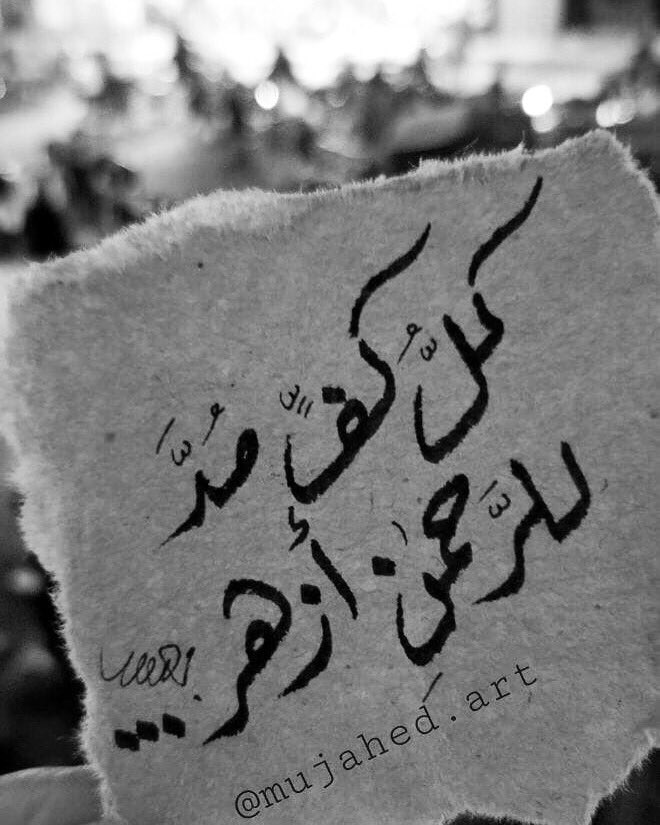 كلُّ كفٍّ مُدَّ
للرَّحمٰنِ أزهر...
@mujahed.art